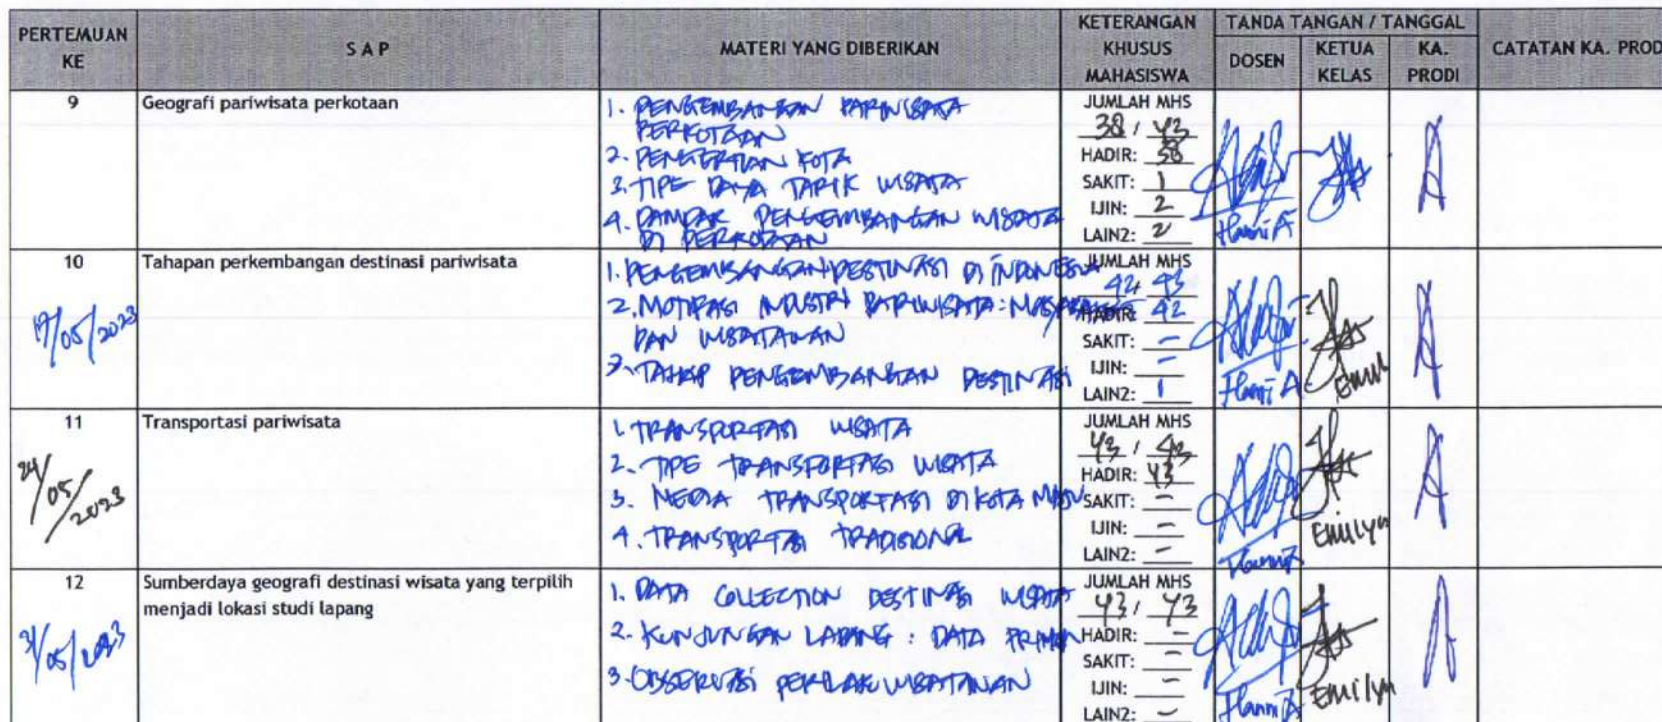 PERTEMUAN KE
S A P
MATERI YANG DIBERIKAN
KETERANGAN KHUSUS MAHASISWA
TANDA TANGAN / TANGGAL
DOSEN
KETUA KELAS
KA. PRODI
CATATAN KA. PROD
9
Geografi pariwisata perkotaan
1. PENGEMBANGAN PARIWISATA
PERKOTAAN
2. PENGERTIAN KOTA
3. TIPE DAYA TARIK WISATA
4. DAMPAK PENGEMBANGAN WISATA
DI PERKOTAAN
JUMLAH MHS
38 / 43
HADIR: 38
SAKIT: 1
IJIN: 2
LAIN2: 2
Hanni A
10
17/05/2023
Tahapan perkembangan destinasi pariwisata
1. PENGEMBANGAN DESTINASI DI INDONESIA
2. MOTIVASI INDUSTRI PARIWISATA: MASYARAKAT
DAN WISATAWAN
3. TAHAP PENGEMBANGAN DESTINASI
JUMLAH MHS
42 / 43
HADIR: 42
SAKIT: -
IJIN: -
LAIN2: 1
Hanni A
11
24/05/2023
Transportasi pariwisata
1. TRANSPORTASI WISATA
2. TIPE TRANSPORTASI WISATA
3. MEDIA TRANSPORTASI DI KOTA
4. TRANSPORTASI TRADISIONAL
JUMLAH MHS
43 / 43
HADIR: 43
SAKIT: -
IJIN: -
LAIN2: -
Emilya
12
31/05/2023
Sumberdaya geografi destinasi wisata yang terpilih
menjadi lokasi studi lapang
1. DATA COLLECTION DESTINASI WISATA
2. KUNJUNGAN LAPANG : DATA PRIMER
3. OBSERVASI PERILAKU WISATAWAN
JUMLAH MHS
43 / 43
HADIR: -
SAKIT: -
IJIN: -
LAIN2: -
Hanni A
Emilya